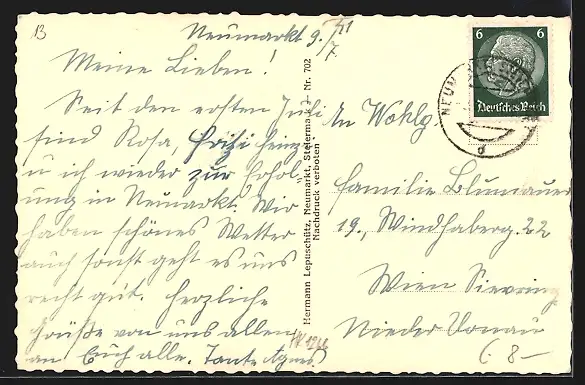 13
Neumarkt 9. 7. 41
Meine Lieben!
Seit den ersten Juli
sind Rosa, Fritzi Heinz
u ich wieder zur Erhol-
ung in Neumarkt. Wir
haben schönes Wetter
auch sonst geht es uns
recht gut. Herzliche
Grüße von uns allen
an Euch alle. Tante Agnes.
Hermann Lepuschütz, Neumarkt, Steiermark - Nr. 702
Nachdruck verboten
6 6
Deutsches Reich
NEUM
d
An Wohlg
Familie Blumauer
19., Windhaberg. 22
Wien Sievring
Nieder Donau
8-